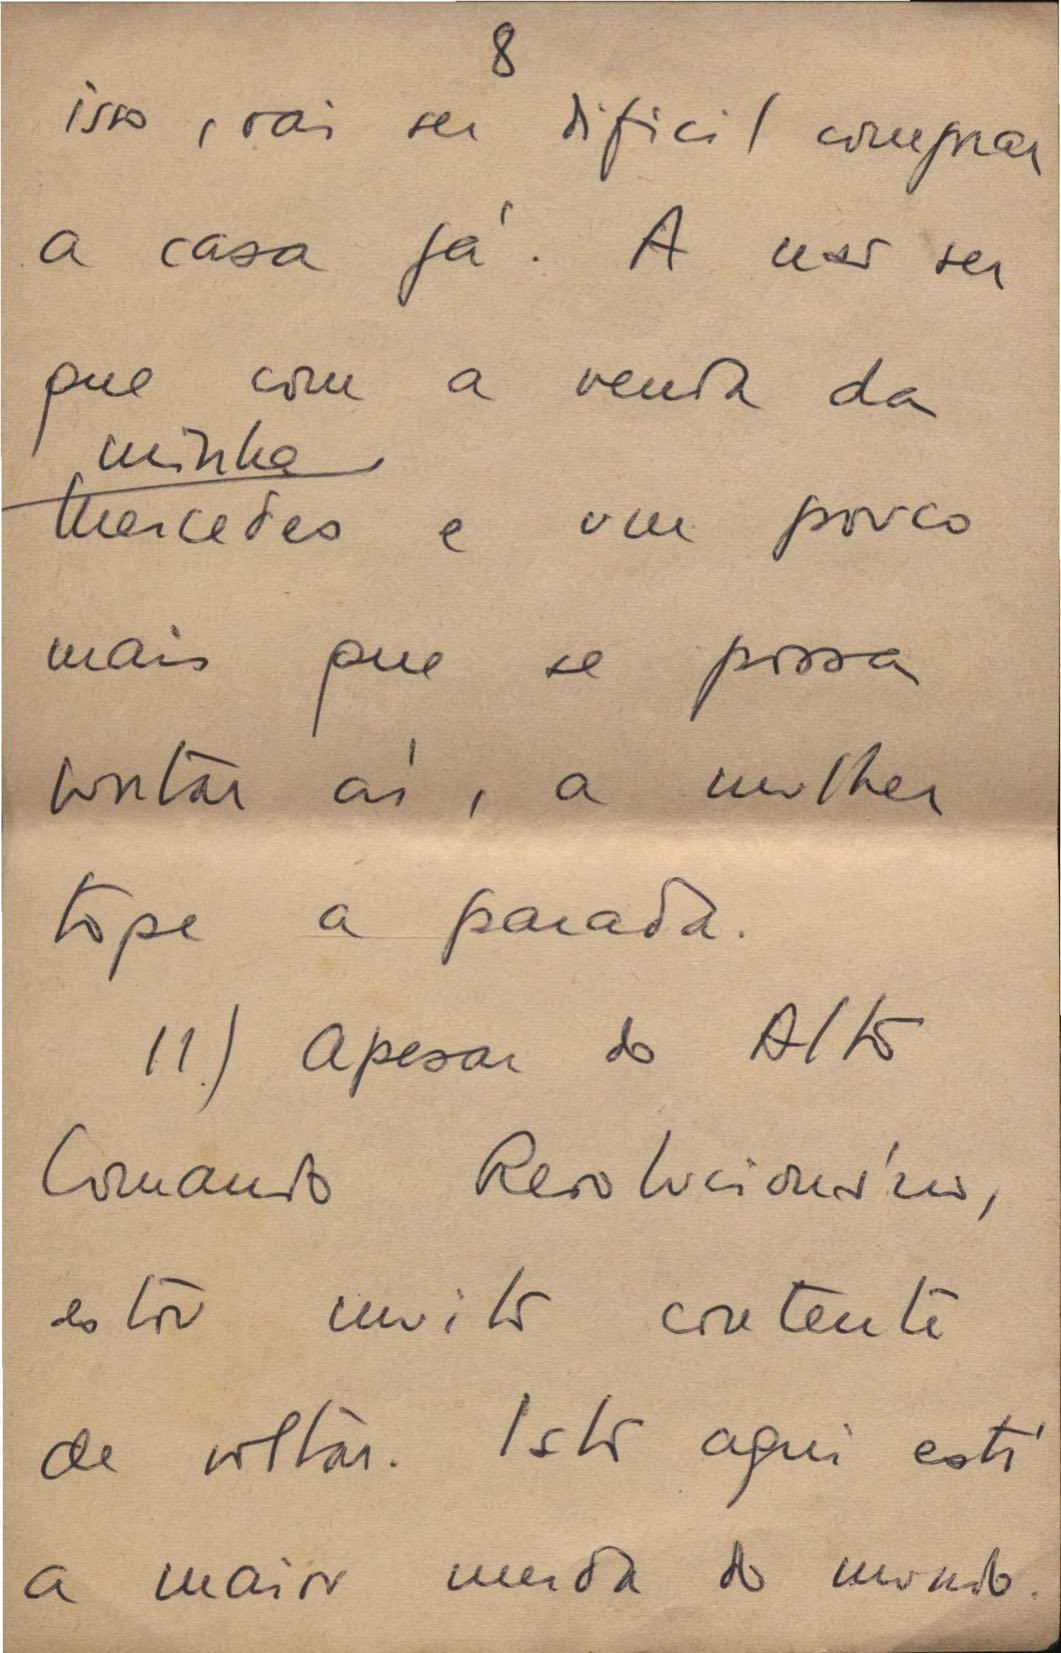 8
isso, vai ser dificil comprar
a casa já. A não ser
que com a venda da
minha
Mercedes e um pouco
mais que se possa
juntar aí, a mulher
tope a parada.
11) Apesar do Alto
Comando Revolucionário,
estou muito contente
de voltar. Isto aqui está
a maior merda do mundo.